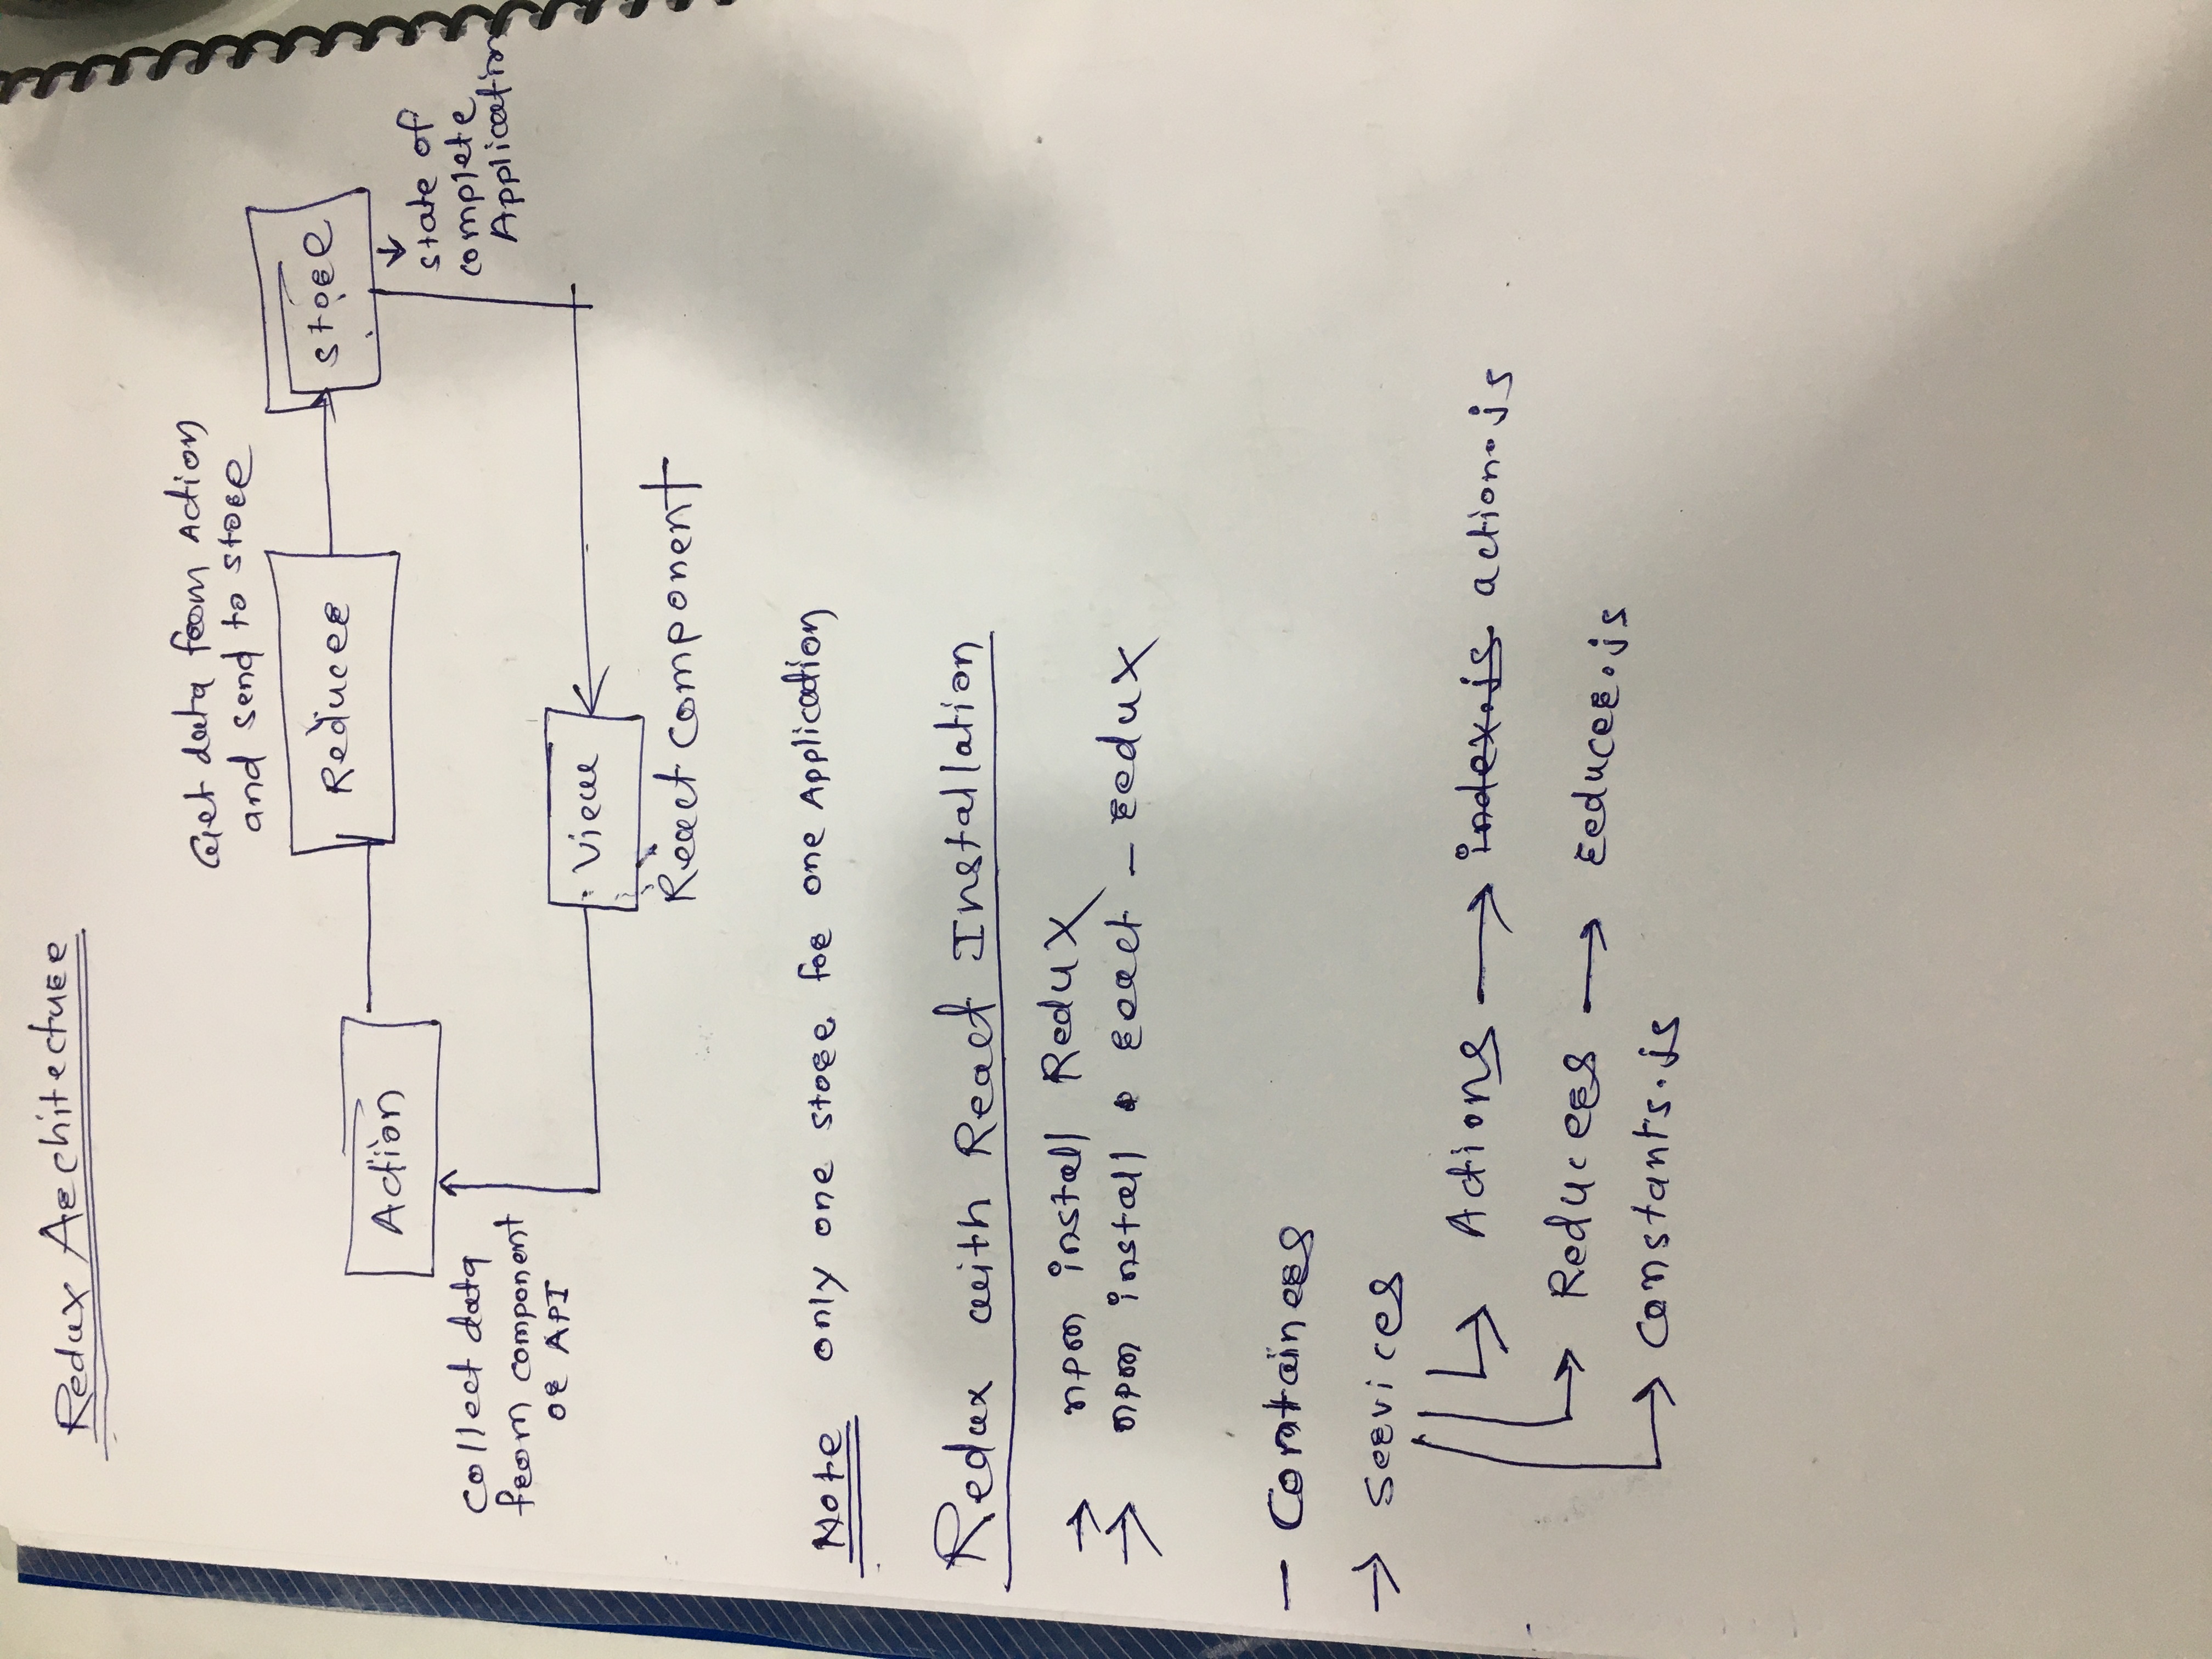 Redux Architecture
Get data from Action
and send to store
Action
Reducer
store
collect data
from component
or API
state of
complete
Application
View
React component
Note only one store for one Application
Redux with React Installation
→ npm install Redux
→ npm install react - redux
- Containers
→ services
Actions → index.js action.js
Reducers → reducer.js
constants.js